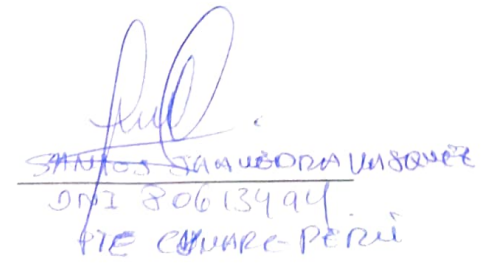 SANTOS SAAVEDRA VASQUEZ
DNI 80613494
PTE CUNARC-PERÚ